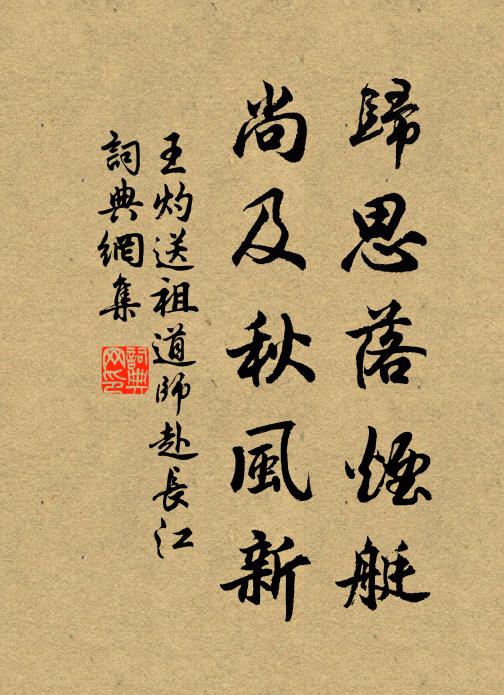 歸思落煙艇
尚及秋風新
王灼送祖道師赴長江
詞典網集
詞典網印